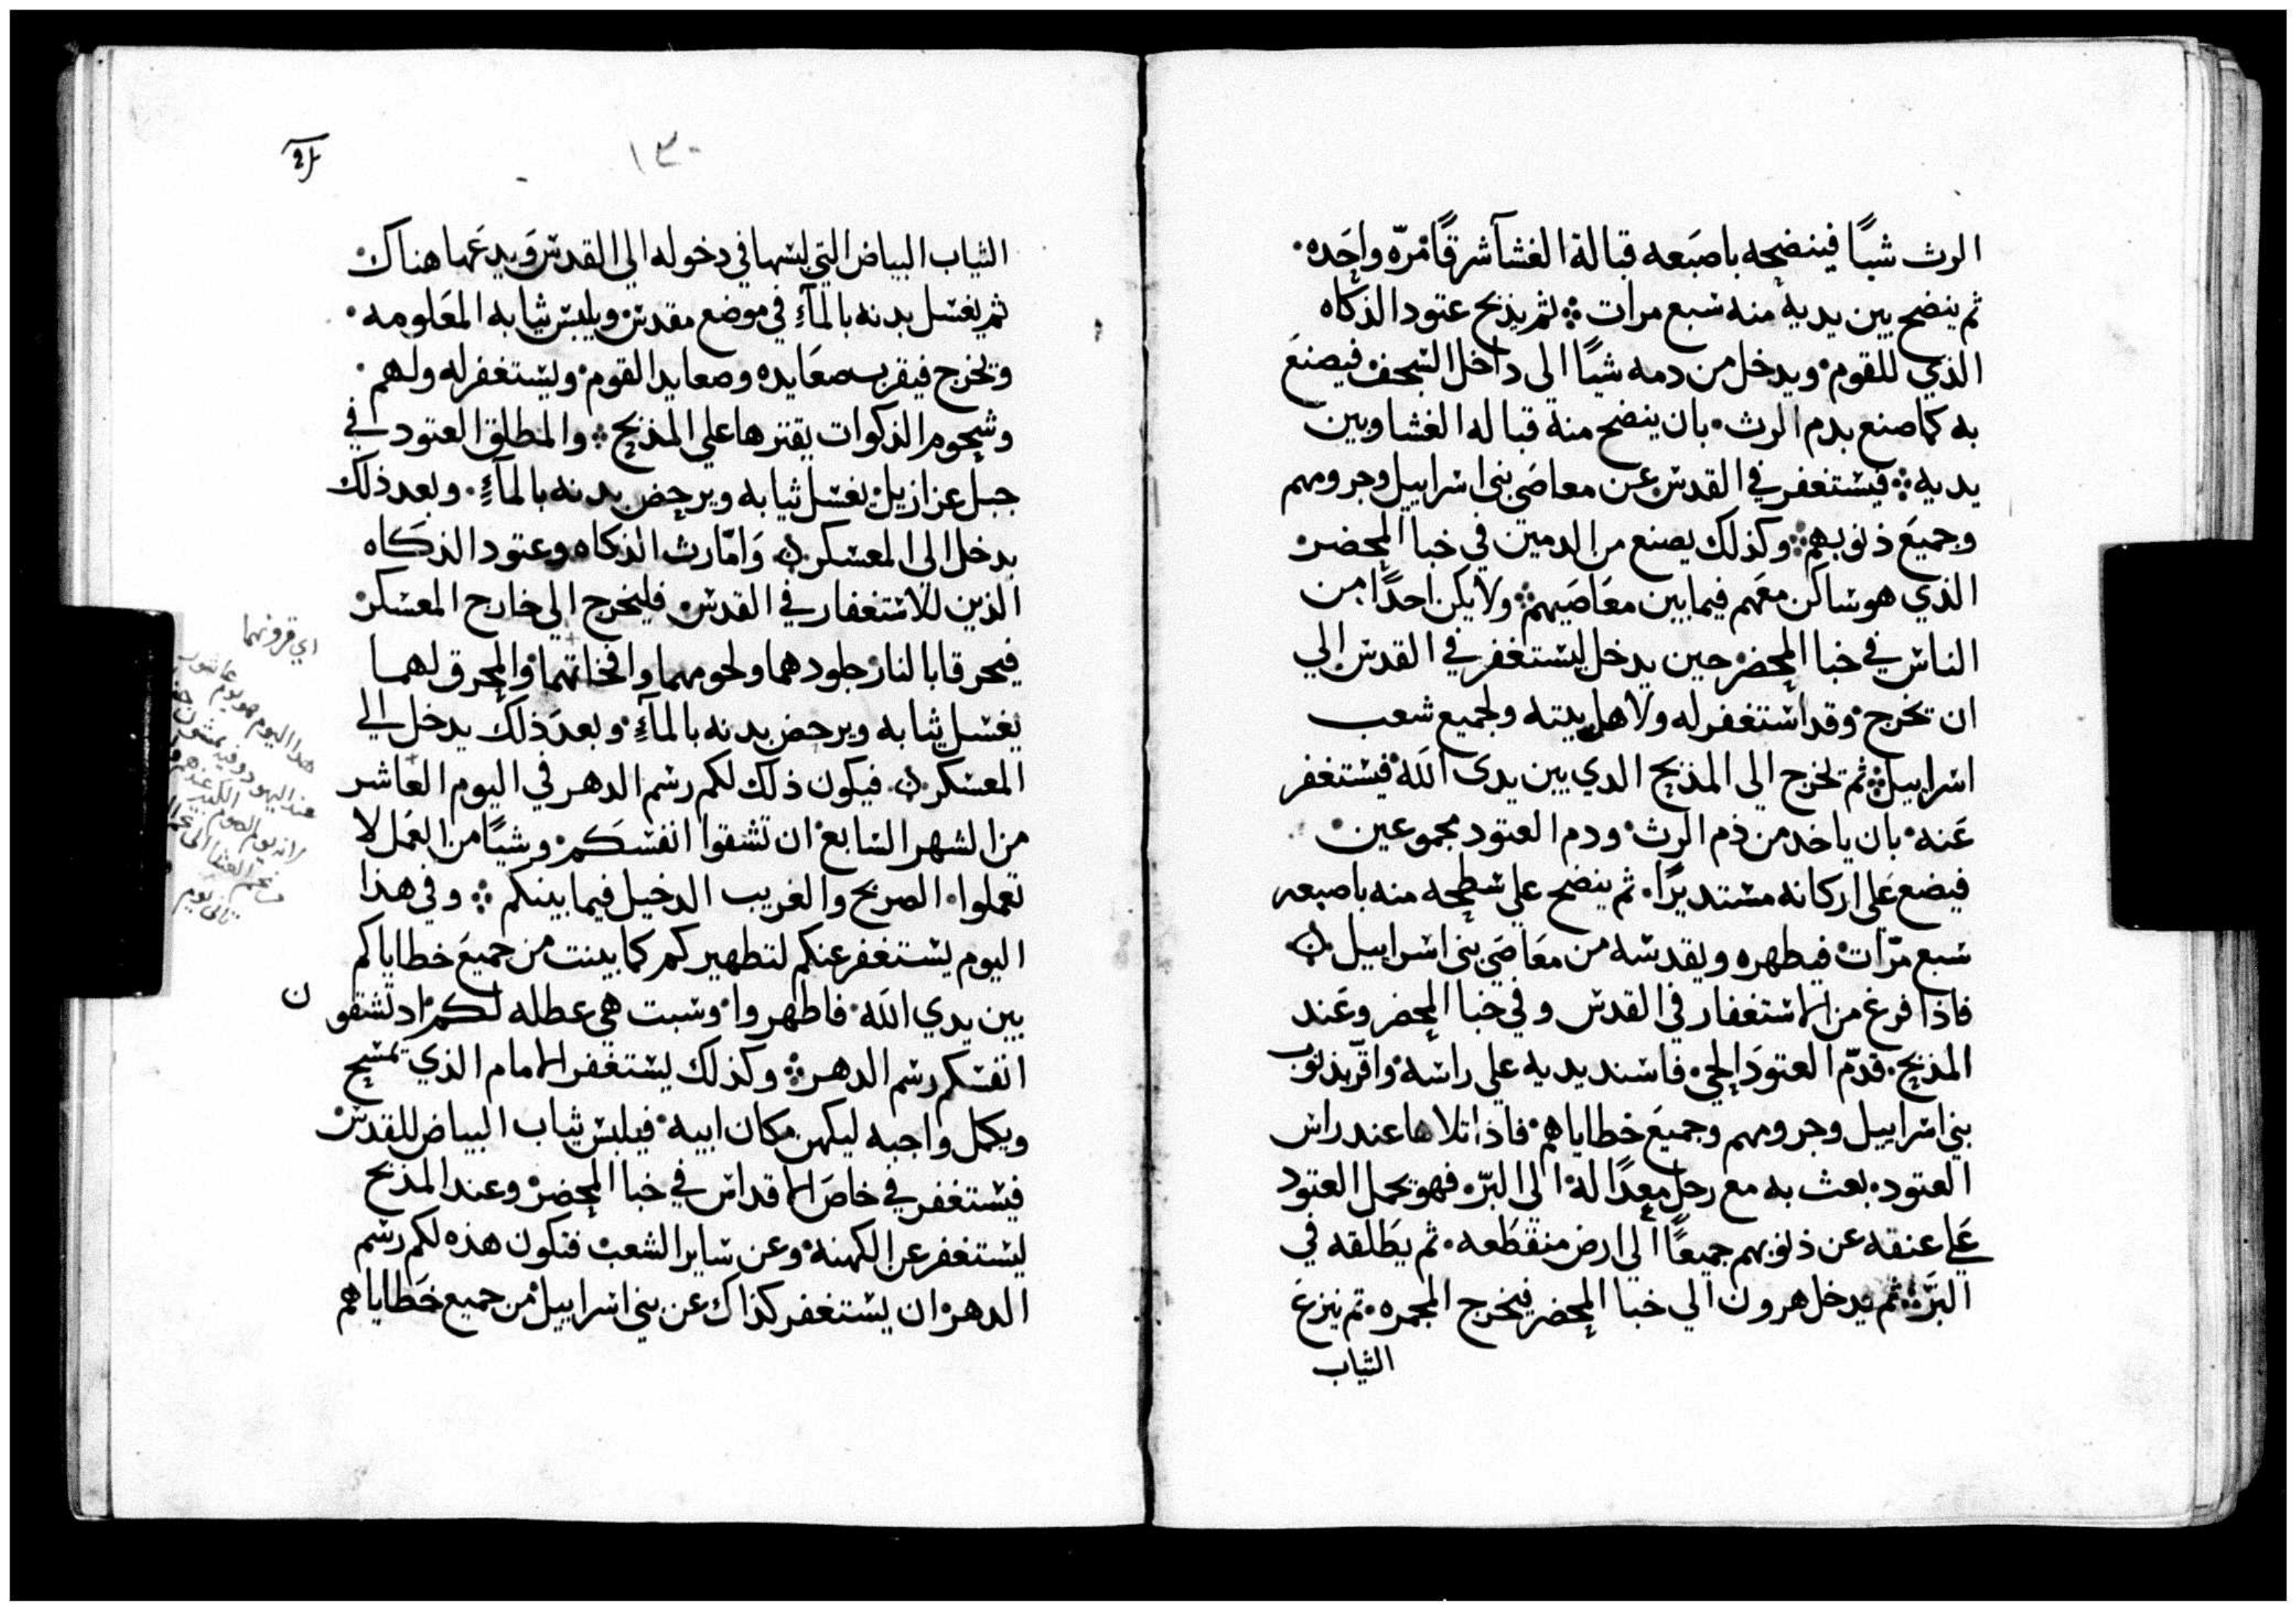 الرث شيًا فينضحه باصبعه قبالة الغشآ شرقًا مرّه واحده.
ثم ينضح بين يديه منه سبع مرات ثم يذبح عتود الذكاه
الذي للقوم ويدخل من دمه شيًا الى داخل السجف فيصنع
به كما صنع بدم الرث. بان ينضح منه قباله الغشا وبين
يديه فيستغفر في القدس عن معاصى بنى اسراييل وجرومهم
وجميع ذنوبهم وكذلك يصنع من الدمين في خبا المحضر
الذي هو ساكن معهم فيما بين معاصيهم ولا يكن احدًا من
الناس في خبا المحضر حين يدخل ليستغفر في القدس الي
ان يخرج وقد استغفر له ولاهل بيته ولجميع شعب
اسراييل ثم يخرج الى المذبح الدي بين يدى الله فيستغفر
عنه بان ياخد من دم الرث ودم العتود مجموعين
فيضع على اركانه مستديرًا. ثم ينضح على سطحه منه باصبعه
سبع مرّات فيطهره ويقدسه من معاصي بني اسراييل ن
فاذا فرغ من الاستغفار في القدس وفي خبا المحضر وعند
المذبح. قدّم العتود الحي. فاسند يديه علي راسه واقر بذنوب
بني اسراييل وجرومهم وجميع خطاياهم فاذا تلاها عند راس
العتود. بعث به مع رجل معدًا له الى البرّ فهو يحمل العتود
علي عنقه عن ذنوبهم جميعًا الي ارض منقطعه. ثم يطلقه في
البرّ ثم يدخل هرون الي خبا المحضر فيخرج المجمره. ثم ينزع
الثياب
١٣٠
الثياب البياض التي لبسها في دخوله الي القدس ويدعها هناك
ثم يغسل بدنه بالمآء في موضع مقدس ويلبس ثيابه المعلومه.
ويخرج فيقرب صعايده وصعايد القوم ويستغفر له ولهم.
وشحوم الذكوات يقترها علي المذبح والمطلق العتود في
جبل عزازيل يغسل ثيابه ويرحض بدنه بالمآء. وبعد ذلك
يدخل الي المعسكر ن وَامّا رث الذكاه وعتود الذكاه
الذين للاستغفار في القدس. فليخرج الي خارج المعسكر
فيحرقا بالنار جلودهما ولحومهما وافخاتهما والمحرق لهما
يغسل ثيابه ويرحض بدنه بالمآء وبعد ذلك يدخل الي
المعسكر ن فيكون ذلك لكم رسم الدهر في اليوم العاشر
من الشهر السابع ان تشقوا انفسكم وشيًا من العمل لا
تعملوا الصريح والغريب الدخيل فيما بينكم وفي هذا
اليوم يستغفر عنكم لتطهيركم كما بينت من جميع خطاياكم
بين يدي الله فاطهروا وسبت هي عطله لكم اد تشقو ن
انفسكم رسم الدهر وكذلك يستغفر الامام الذي يمسح
ويكمل واجبه ليكهن مكان ابيه فيلبس ثياب البياض للقدس
فيستغفر في خاص الاقداس في خبا المحضر وعند المذبح
ليستغفر عن الكهنه وعن ساير الشعب فتكون هذه لكم رسم
الدهر ان يستغفر كذاك عن بني اسراييل من جميع خطاياهم
اي قرونهما
هدا اليوم هو يوم عاشور
عند اليهود وفيه
يوم الصوم الكبير عندهم
العشا الى
تاني يوم